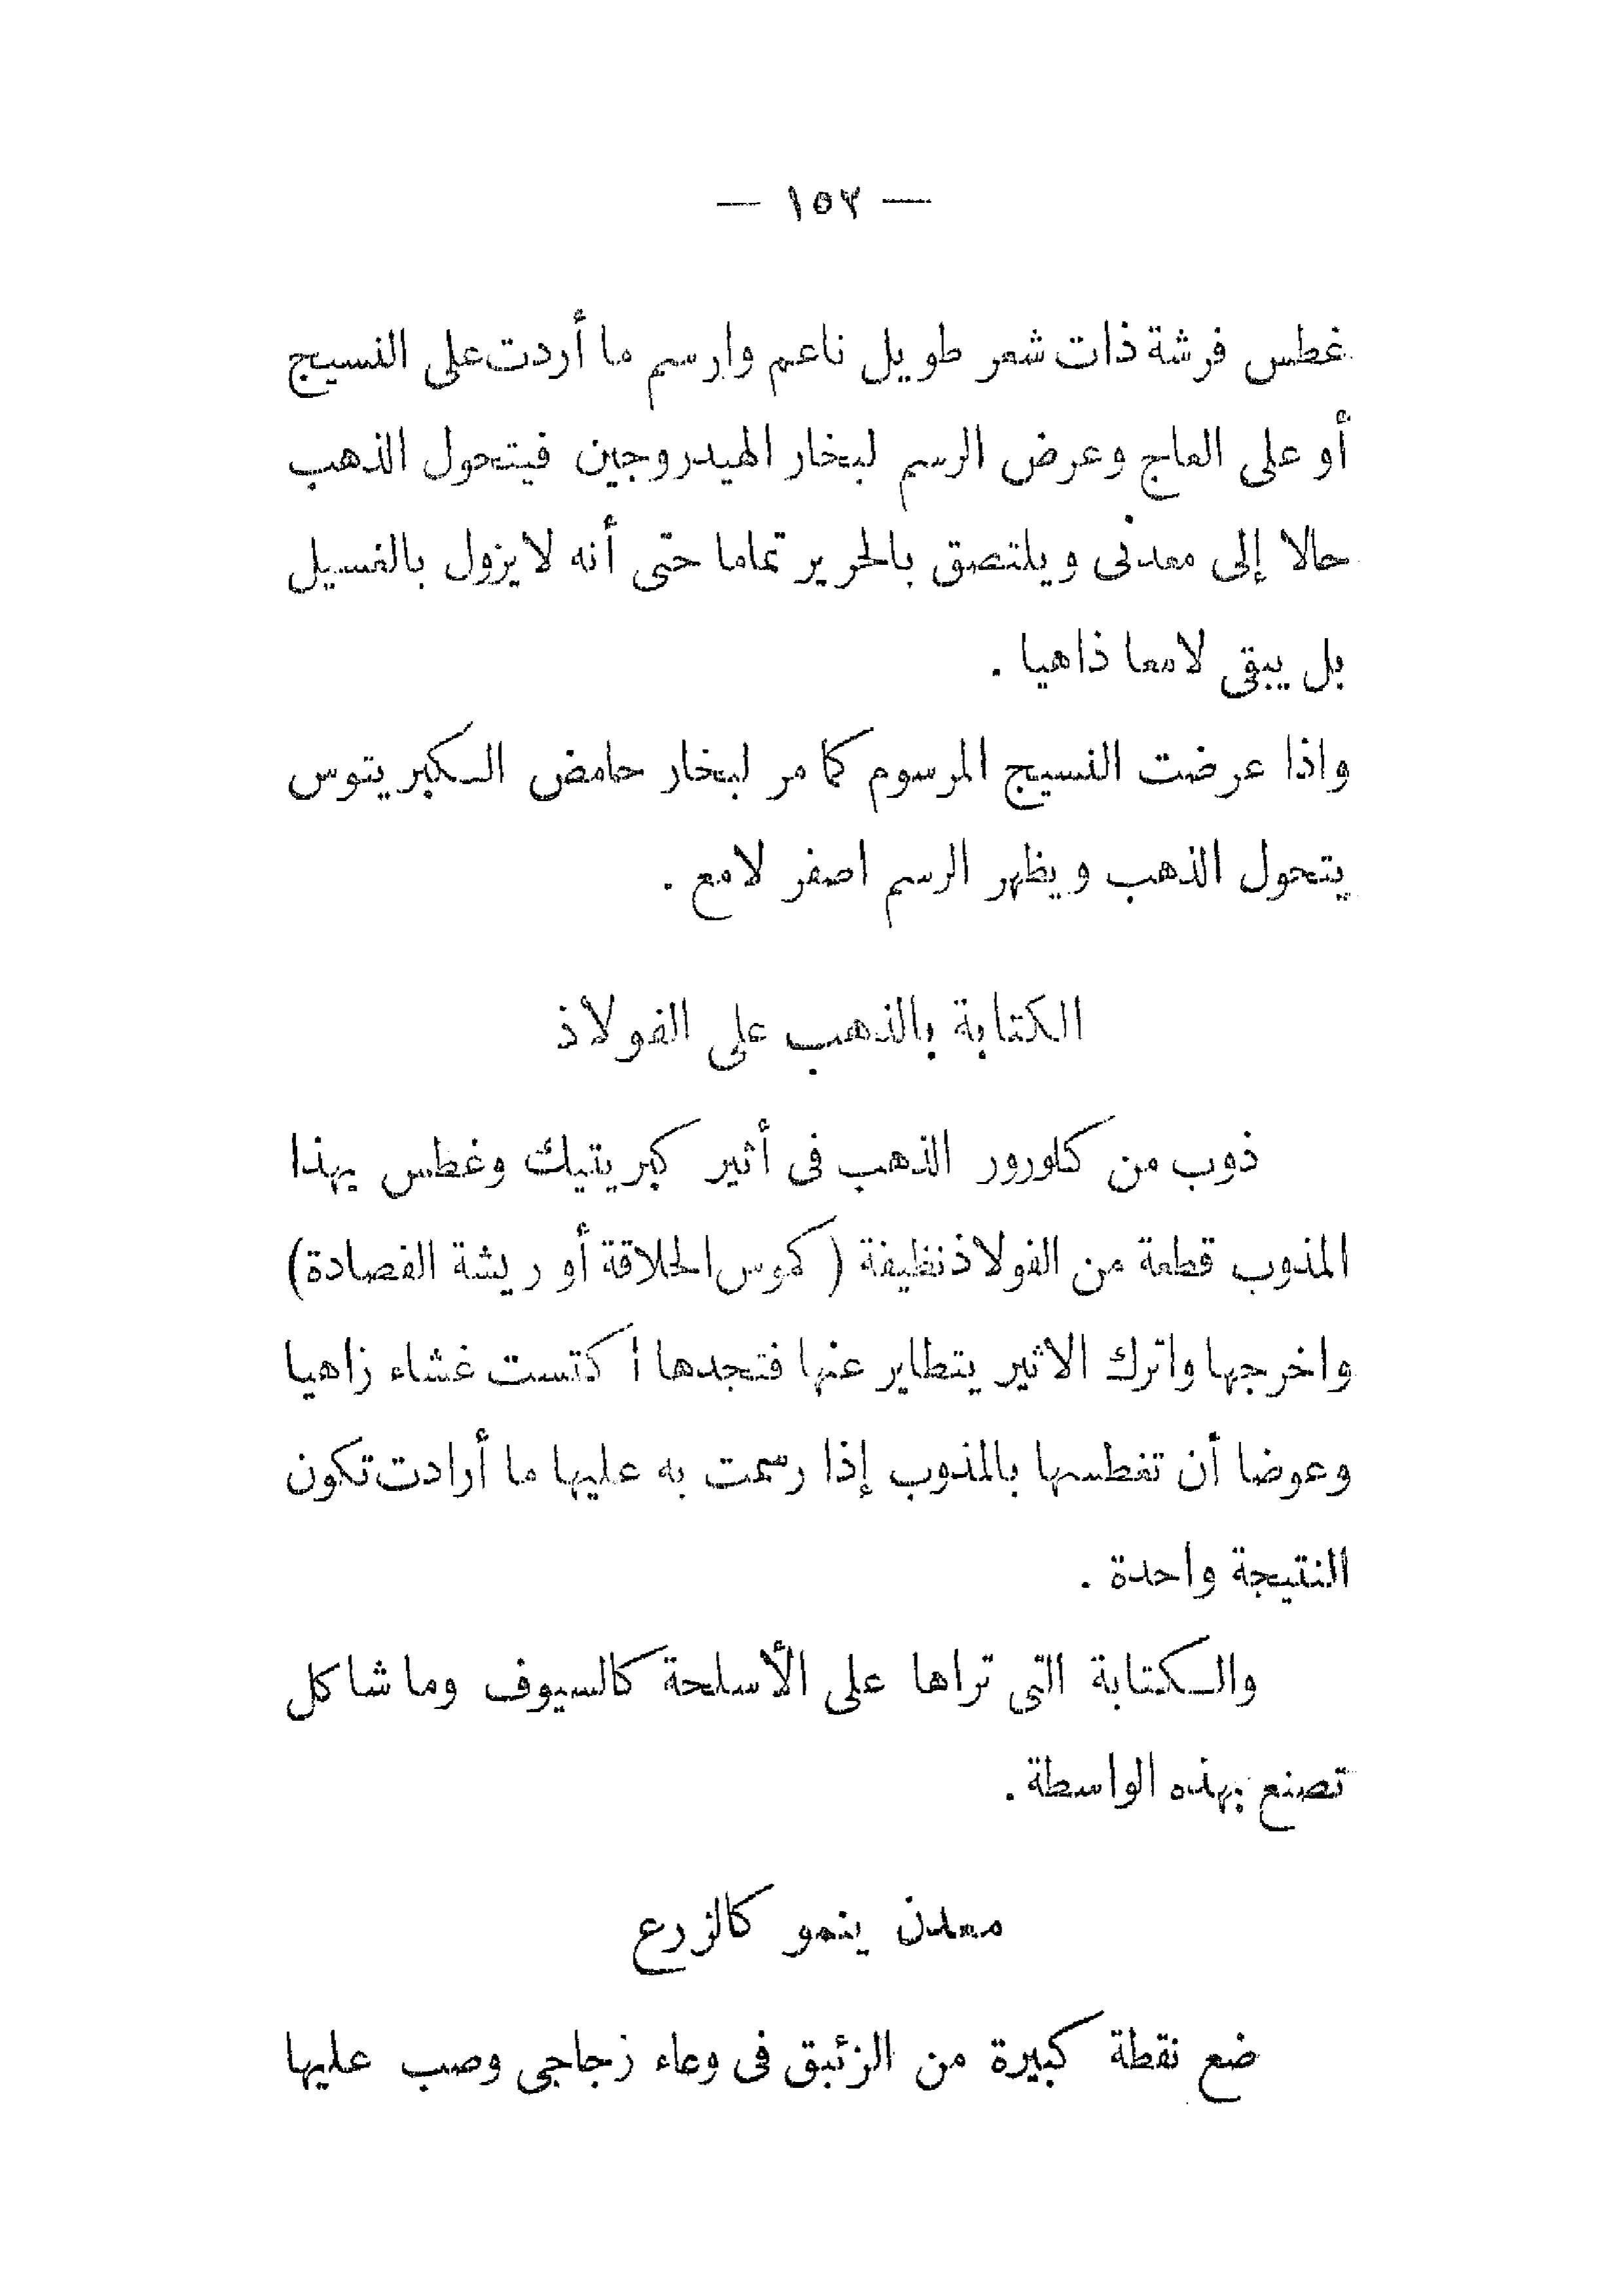 — ١٥٢ —
غطس فرشة ذات شعر طويل ناعم وارسم ما أردت على النسيج
أو على العاج وعرض الرسم لبخار الهيدروجين فيتحول الذهب
حالا إلى معدنى ويلتصق بالحرير تماما حتى أنه لا يزول بالغسيل
بل يبقى لامعا ذاهيا .
واذا عرضت النسيج المرسوم كما مر لبخار حامض الكبريتوس
يتحول الذهب ويظهر الرسم اصفر لامع .
الكتابة بالذهب على الفولاذ
ذوب من كلورور الذهب فى أثير كبريتيك وغطس بهذا
المذوب قطعة من الفولاذ نظيفة ( كموس الحلاقة أو ريشة الفصادة)
واخرجها واترك الاثير يتطاير عنها فتجدها اكتست غشاء زاهيا
وعوضا أن تغطسها بالمذوب إذا رسمت به عليها ما أرادت تكون
النتيجة واحدة .
والكتابة التى تراها على الأسلحة كالسيوف وما شاكل
تصنع بهذه الواسطة .
معدن ينمو كالزرع
ضع نقطة كبيرة من الزئبق فى وعاء زجاجى وصب عليها